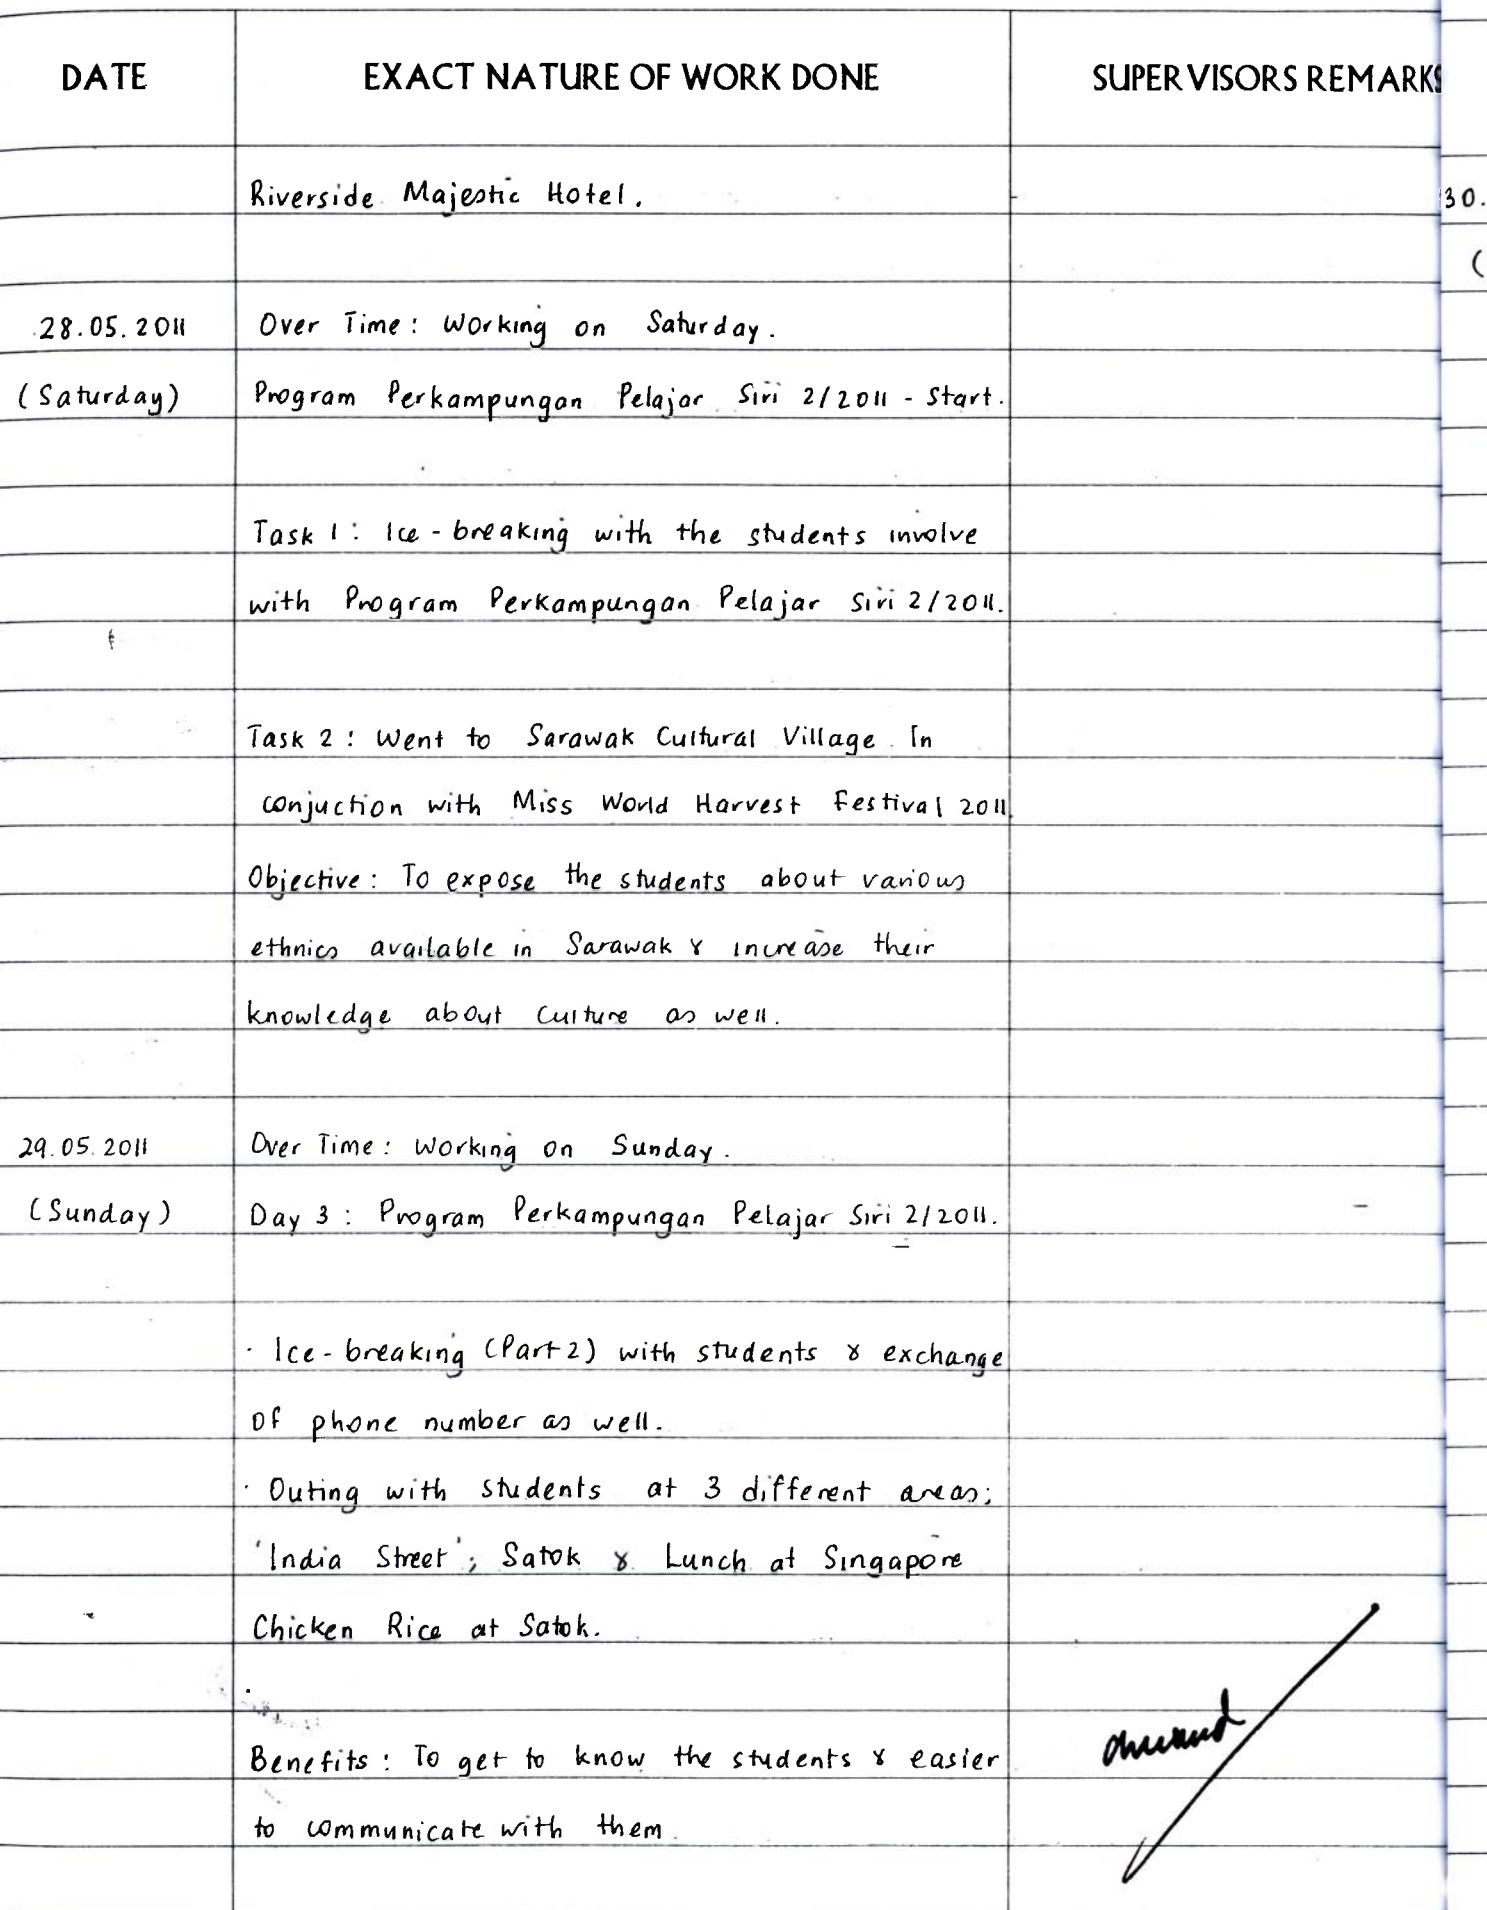 DATE EXACT NATURE OF WORK DONE SUPERVISORS REMARKS
Riverside Majestic Hotel.
30.
(
28.05.2011 Over Time: Working on Saturday.
(Saturday) Program Perkampungan Pelajar Siri 2/2011 - Start.
Task 1: Ice-breaking with the students involve
with Program Perkampungan Pelajar Siri 2/2011.
Task 2: Went to Sarawak Cultural Village In
conjuction with Miss World Harvest Festival 2011.
Objective: To expose the students about various
ethnics available in Sarawak & increase their
knowledge about culture as well.
29.05.2011 Over Time: Working on Sunday.
(Sunday) Day 3: Program Perkampungan Pelajar Siri 2/2011.
· Ice-breaking (Part 2) with students & exchange
of phone number as well.
· Outing with students at 3 different areas;
'India Street'; Satok & Lunch at Singapore
Chicken Rice at Satok.
Benefits: To get to know the students & easier
to communicate with them.